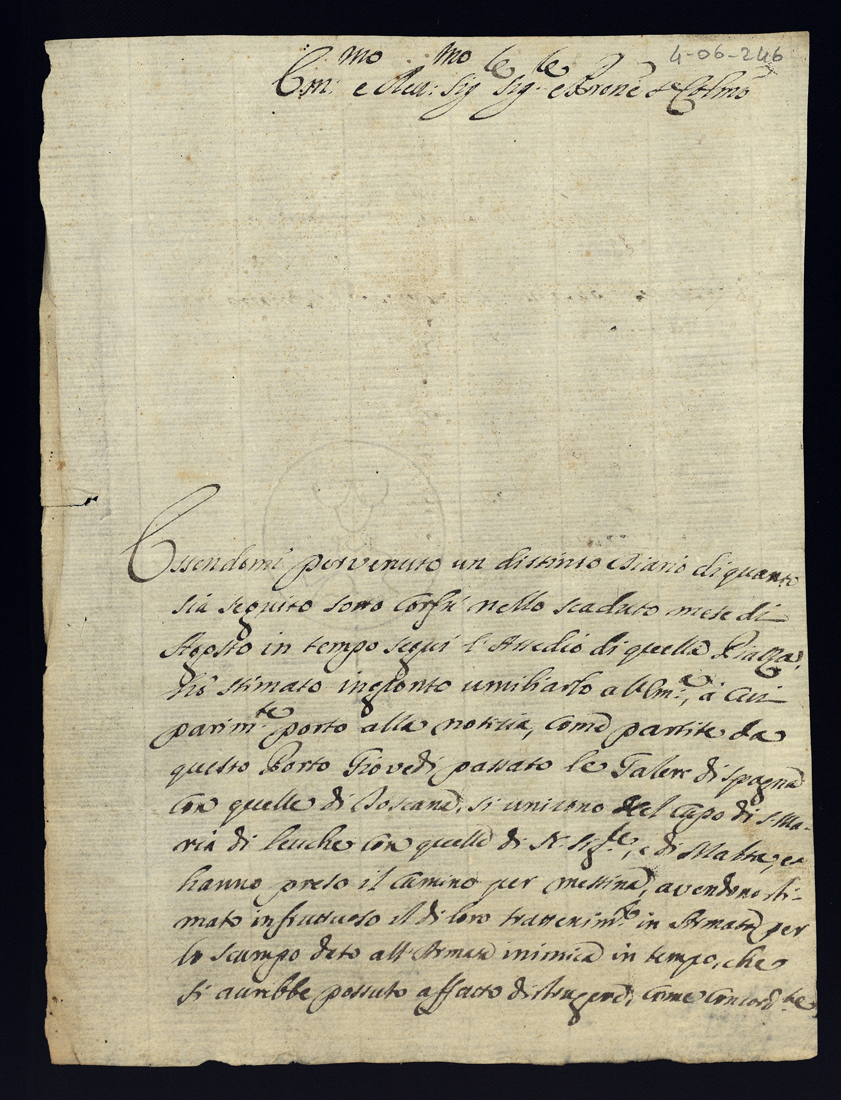 4-06-246
Em:mo e Reu:mo Sig:re Sig:re e Prone Colmo
Essendomi pervenuto un distinto Diario di quanto
sia seguito sotto Corfù nello scaduto mese di
Agosto in tempo seguì l'Assedio di quella Piazza,
hò stimato ingionto umiliarlo all'Em:e, à cui
parim:te porto alla notizia, come partite da
questo Porto Giovedì passato le Galere di Spagna
con quelle di Toscana, si unirono nel capo di S. Ma-
ria di Leuche con quelle di N. Sig:re, e di Malta, e
hanno preso il camino per Messina, avendono sti-
mato infruttuoso il di loro trattenim:to in Armata per
lo scampo dato all'Armata inimica in tempo, che
si aurebbe possuto affatto distrugere, come